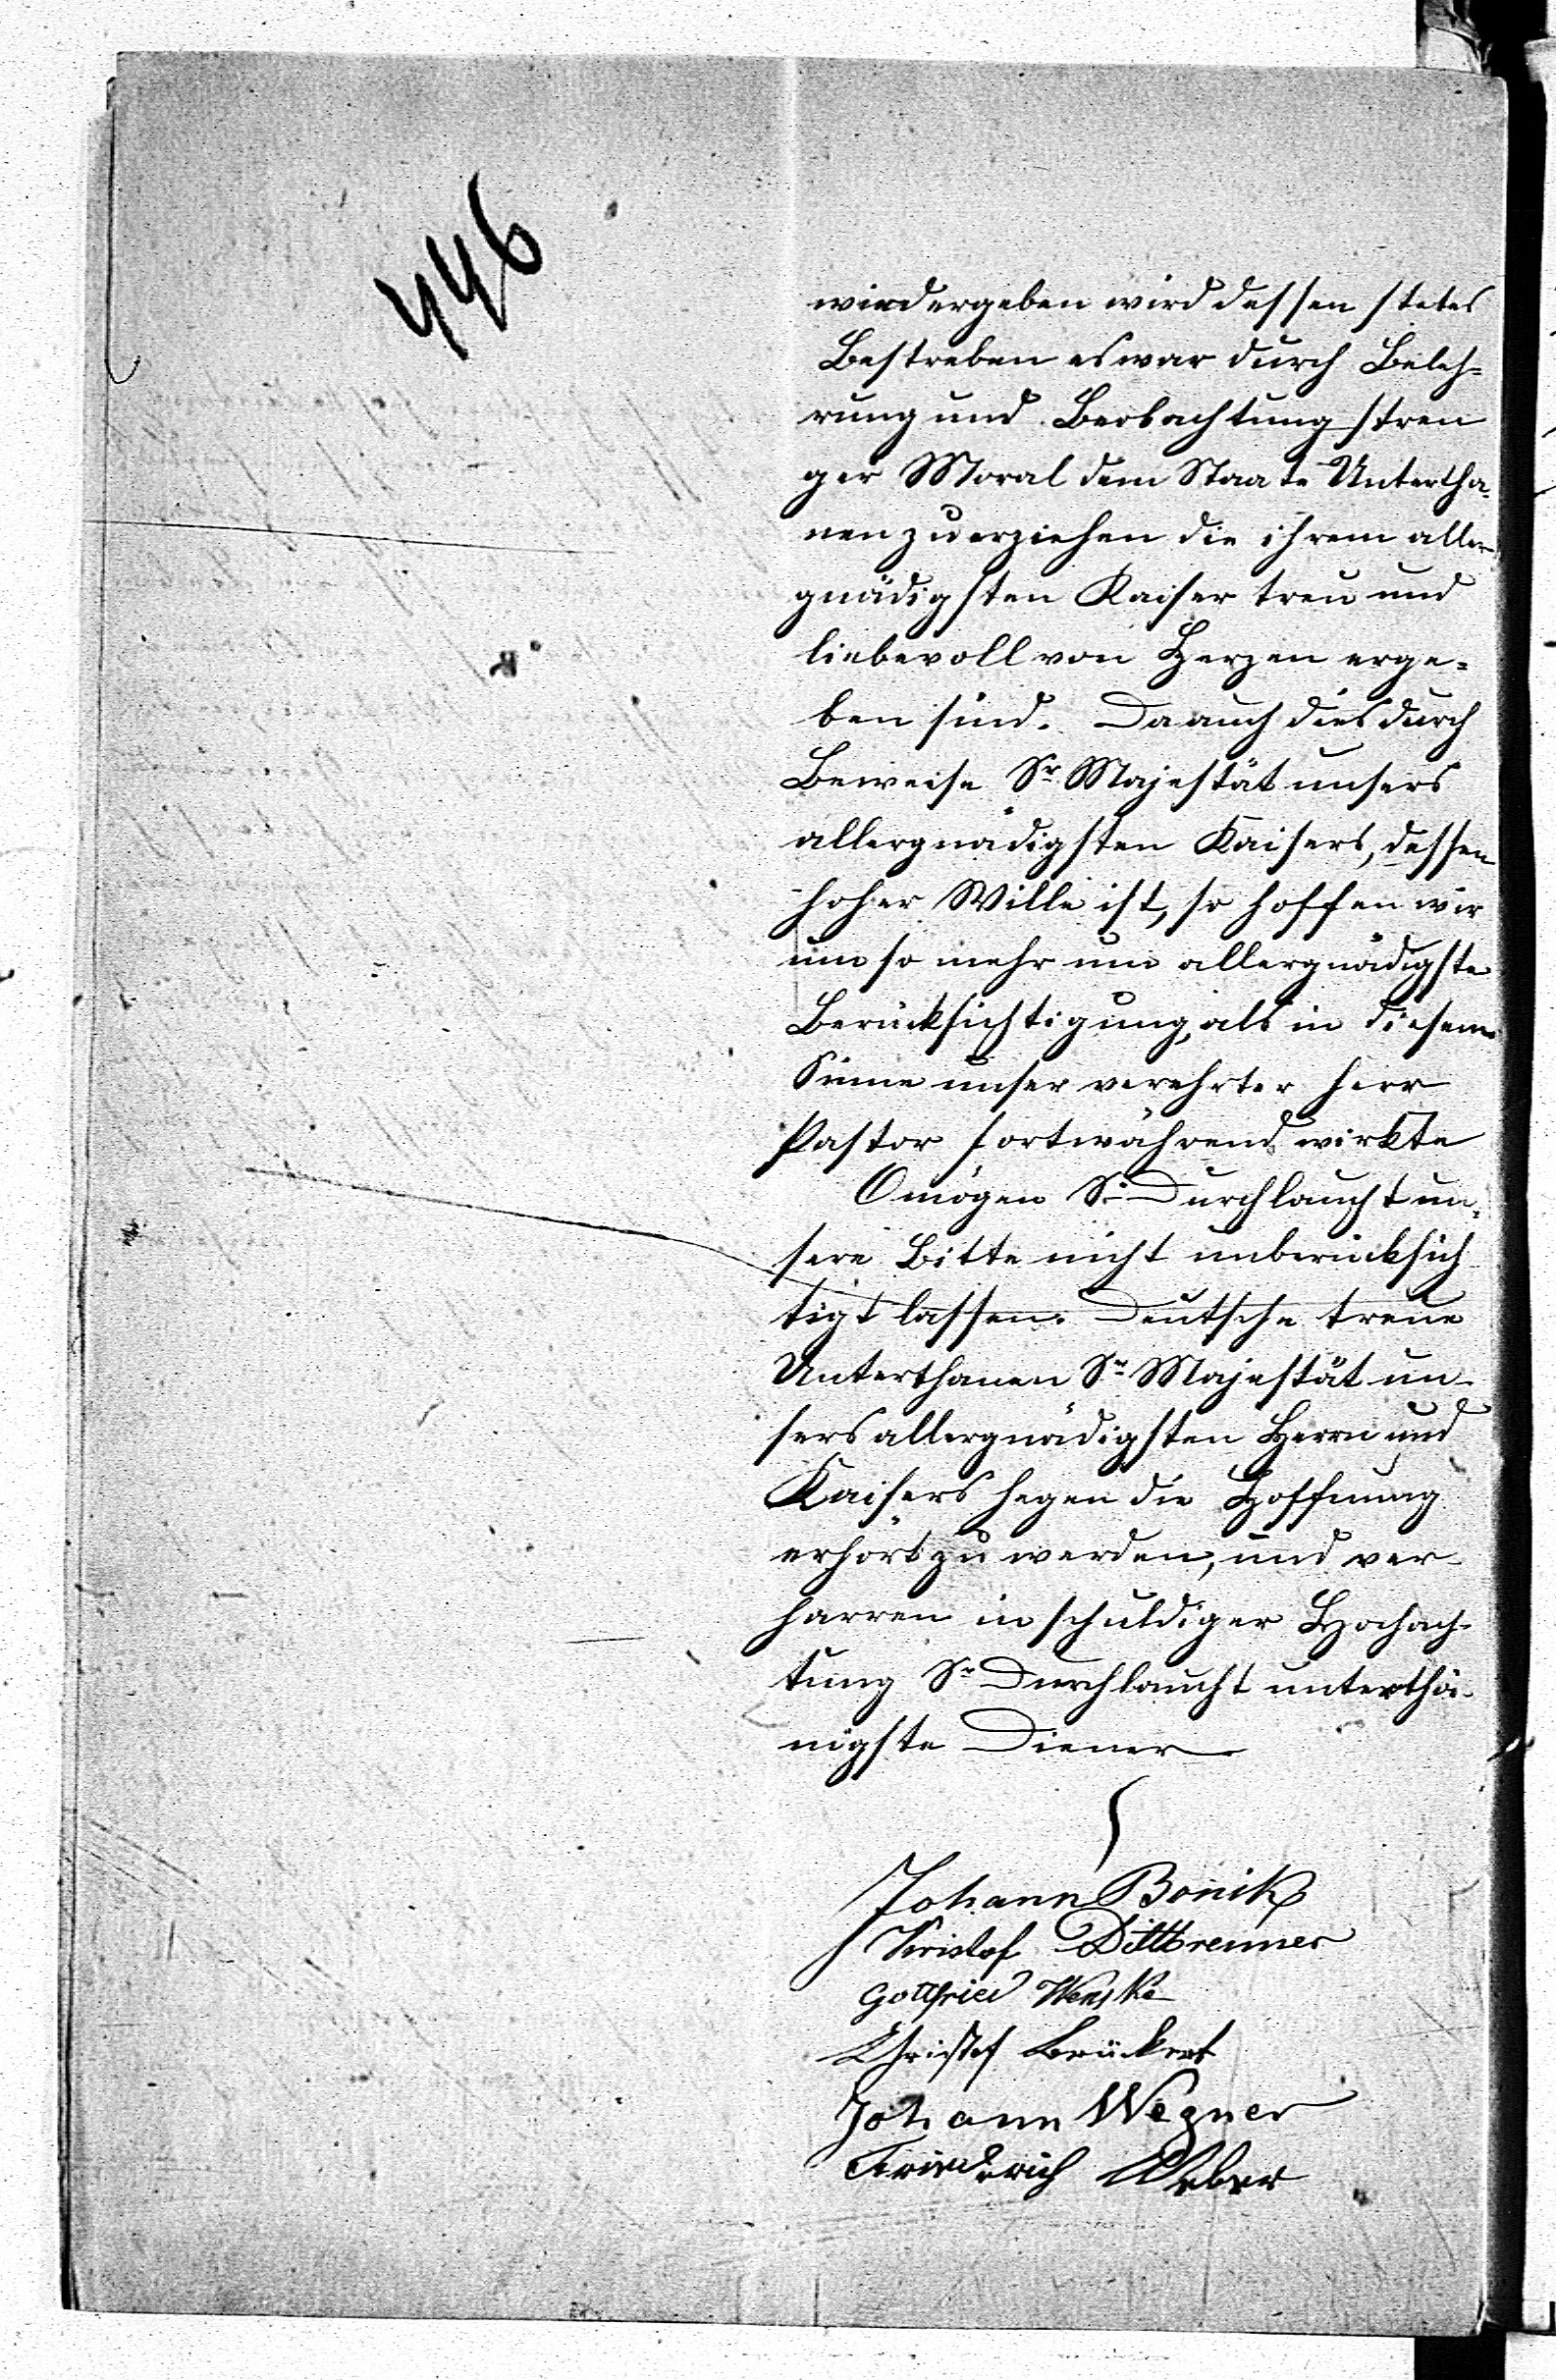 446
wiedergeben wird dessen stetes
Bestreben es war durch Beleh=
rung und Beobachtung stren
ger Moral dem Staate Untertha-
nen zu erziehen die ihrem aller-
gnädigsten Kaiser treu und
liebevoll von Herzen erge=
ben sind. Da auch dies durch
Beweise Sr Majestät unsers
allergnädigsten Kaisers, dessen
hoher Wille ist, so hoffen wir
um so mehr um allergnädigste
Berücksichtigung, als in diesem
Sinne unser verehrter Herr
Pastor fortwährend wirkte
O mögen Sr Durchlaucht un-
sere Bitte nicht unberücksich
tigt lassen. Deutsche treue
Unterthanen Sr Majestät un-
sers allergnädigsten Herrn und
Kaisers hegen die Hoffnung
erhört zu werden, und ver-
harren in schuldiger Hochach-
tung Sr Durchlaucht unterthä-
nigste Diener
Johann Bonik
Kristof Dittbrenner
Gottfried Wenske
Christof Brückert
Johann Wegner
Friederich Weber